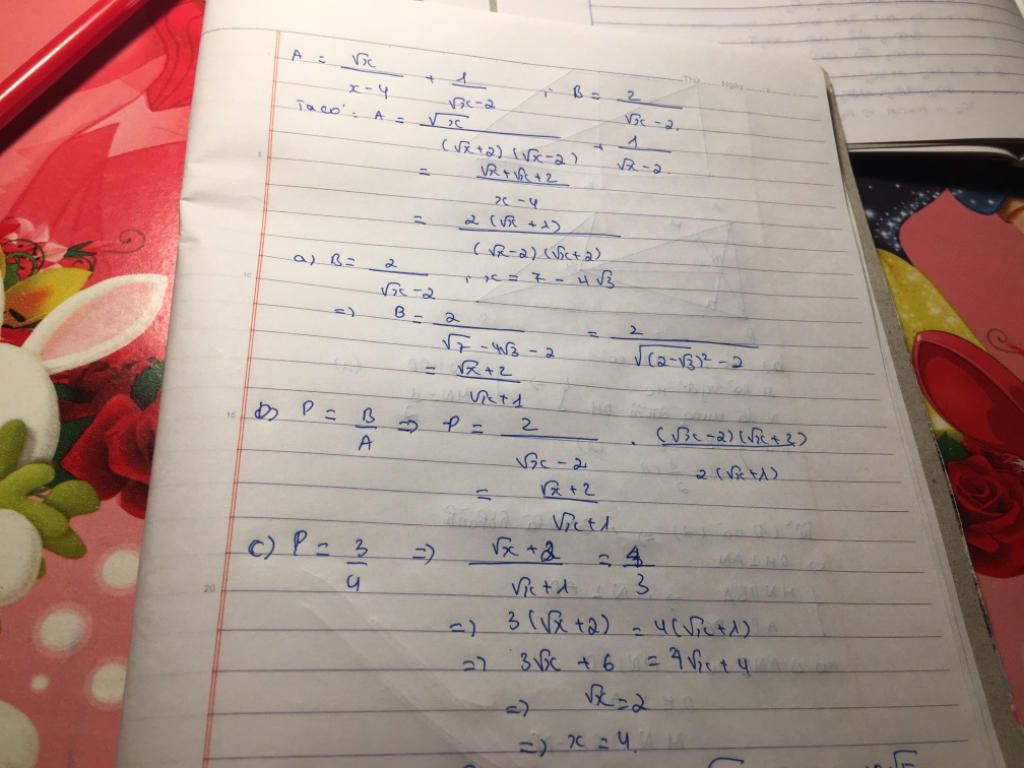 A = √x/(x-4) + 1/(√x-2) ; B = 2/(√x-2).
Ta có: A = √x/((√x+2)(√x-2)) + 1/(√x-2).
= (√x+√x+2)/(x-4)
= 2(√x+1)/((√x-2)(√x+2))
a) B = 2/(√x-2) ; x = 7 - 4√3
=> B = 2/(√7-4√3-2) = 2/(√(2-√3)²-2)
= (√x+2)/(√x+1)
b) P = B/A => P = 2/(√x-2) . (√x-2)(√x+2)/(2(√x+1))
= (√x+2)/(√x+1)
c) P = 3/4 => (√x+2)/(√x+1) = 4/3
=> 3(√x+2) = 4(√x+1)
=> 3√x + 6 = 4√x + 4
=> √x = 2
=> x = 4.